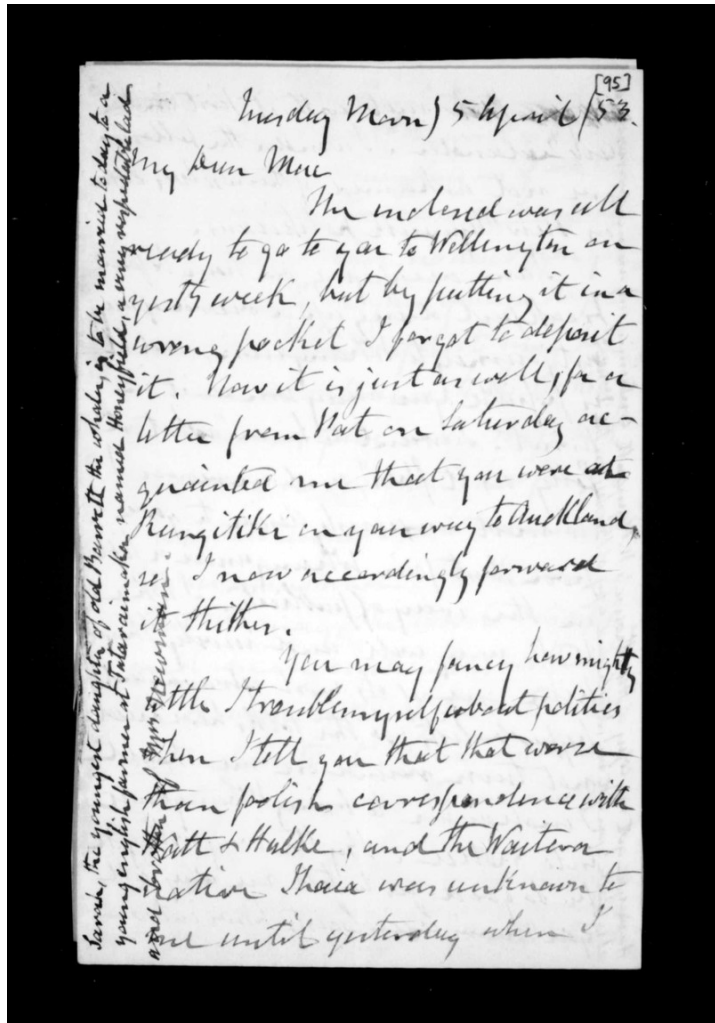 [95]
Tuesday Morng 5 April /53.
My Dear Mac
The inclosed was all
ready to go to you to Wellington on
yesty week, but by putting it in a
wrong pocket I forgot to deposit
it. Now it is just as well, for a
letter from Pat on Saturday ac-
quainted me that you were at
Rangitiki on your way to Auckland,
I now accordingly forward
it thither.
You may fancy how mighty
little I trouble myself about politics
when I tell you that that worse
than foolish correspondence with
Watt & Halke, and the Waitera
native Ihaia was unknown to
me until yesterday when I
Sarah, the youngest daughter of old Barrett the whaler, is to be married today to a
young english farmer at Tataraimaka named Honeyfield, a very respectable lad
and brother of Mrs Newman